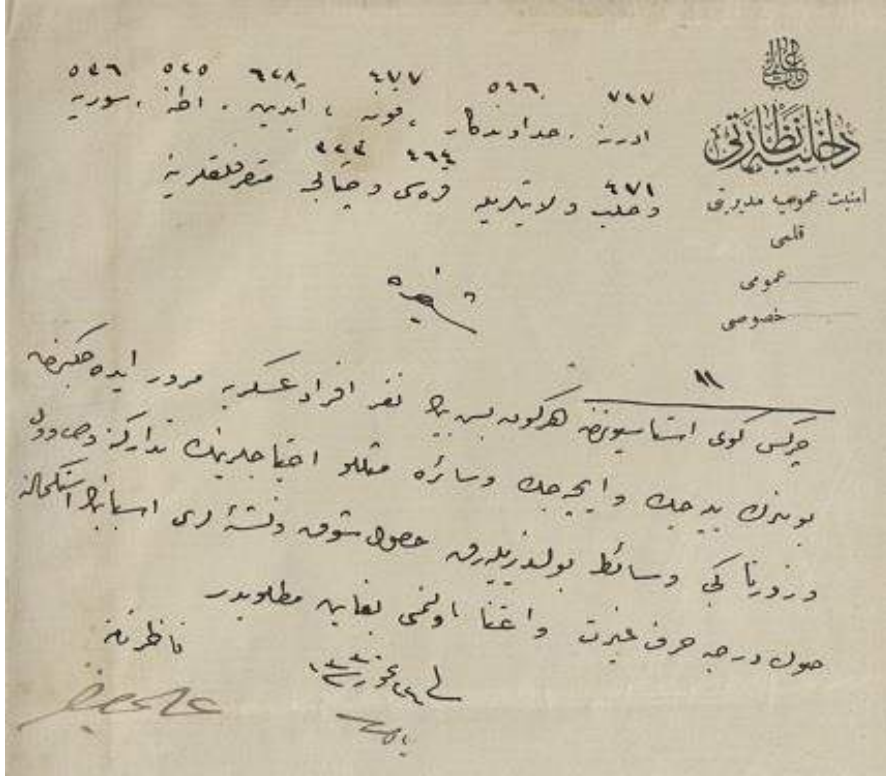 داخلیه نظارتی
امنیت عمومیه مدیریتی
قلمی
عمومی
خصوصی
٧٢٧ ٥٤٦ ٤٧٧ ٦٢٨ ٥٢٥ ٥٢٦
ادرنه ، خداوندکار ، قونیه ، آیدین ، اطنه ، سوریه
٤٧١ ٤٦٤ ٤٢٣
وحلب ولایتلریله قره سی و چتالجه متصرفلقلرینه
شفره
چرکس کوی استاسیونندن هرکون بش بیك نفر افراد عسکریه مرور ایده جکندن
بونلرك ییه جك وایچه جك وسائره مثللو احتیاجلرینك تدارکی وداوول
وزورنا کبی وسائط بولدیریلهرق حصول شوق ونشئه لری اسبابنك استکمالنه
صوك درجه صرف غیرت واعتنا اولنمسی بغایت مطلوبدر
ناظر نامنه